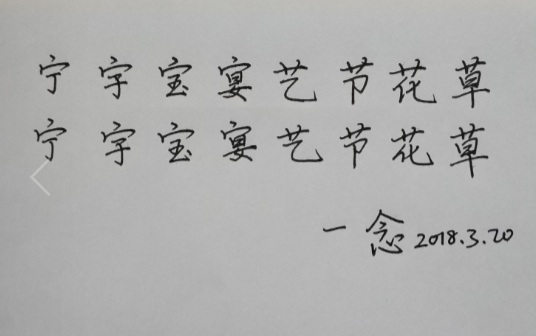 宁字宝宴艺节花草
宁字宝宴艺节花草
一念2018.3.20